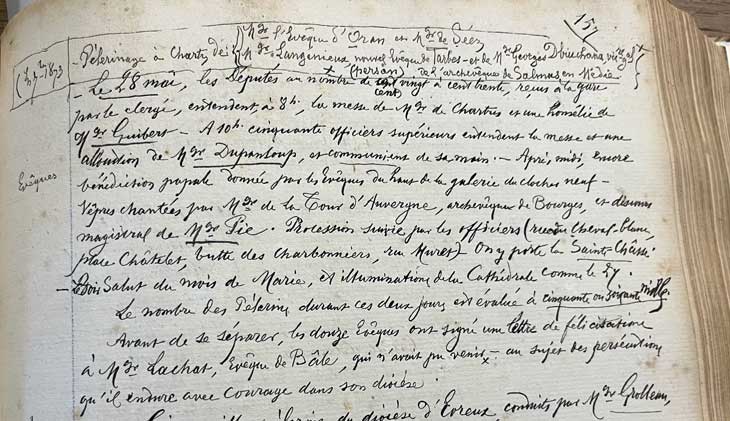 157
(Z.p. 1873
- Pélerinage à Chartres de Mgr l'Evêque d'Oran et Mgr de Séez,
Mgr Langénieux nouvel Evêque de Tarbes - et de Mr Georges Dbouchana
(persan) de l'archevêque de Salmas, en Médie
- Le 28 mai, les Députés au nombre de cent vingt à cent trente, reçus à la gare
par le clergé, entendent, à 8h, la messe de Mgr de Chartres et une homélie de
Mgr Guibert - A 10h cinquante officiers supérieurs entendent la messe et une
allocution de Mgr Dupanloup, et communient de sa main. - Après midi, encore
Evêques
bénédiction papale donnée par les Evêques du haut de la galerie du clocher neuf -
Vêpres chantées par Mgr de la Tour d'Auvergne, archevêque de Bourges, et discours
magistral de Mgr Pie. Procession suivie par les officiers (rue du Cheval-blanc,
place Châtelet, butte des Charbonniers, rue Muret) On y porte la Sainte Châsse.
- Le Soir Salut du mois de Marie, et illumination de la Cathédrale comme le 27.
Le nombre des Pélerins durant ces deux jours est évalué à cinquante ou soixante mille.
Avant de se séparer, les douze Evêques ont signé une lettre de félicitations
à Mgr Lachat, Evêque de Bâle, qui n'avait pu venir - au sujet des persécutions
qu'il endure avec courage dans son diocèse.
du diocèse d'Evreux conduits par Mgr Grolleau,